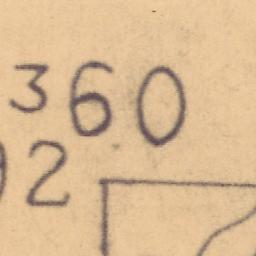 360
2